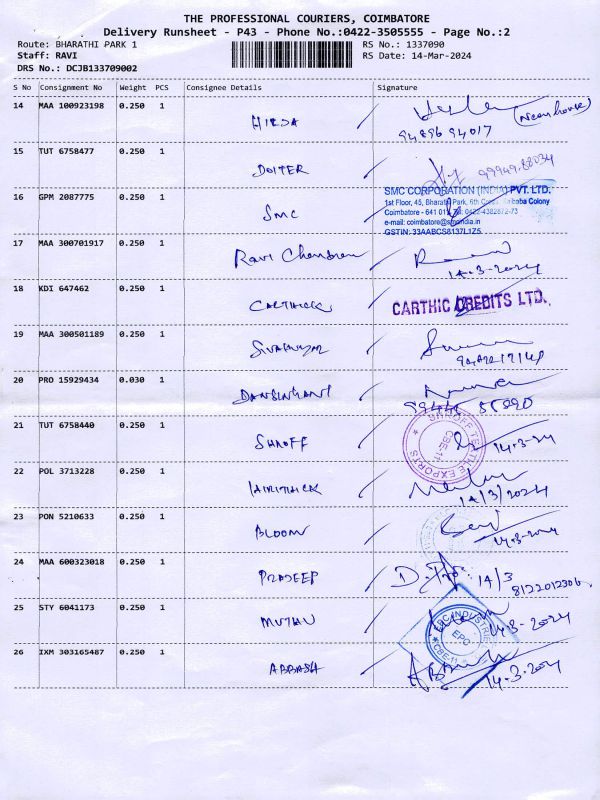 THE PROFESSIONAL COURIERS, COIMBATORE
Delivery Runsheet - P43 - Phone No.:0422-3505555 - Page No.:2
Route: BHARATHI PARK 1 RS No.: 1337090
Staff: RAVI RS Date: 14-Mar-2024
DRS No.: DCJB133709002
S No Consignment No Weight PCS Consignee Details Signature
14 MAA 100923198 0.250 1
94896 94017
15 TUT 6758477 0.250 1 DOITER
16 GPM 2087775 0.250 1 SMC
SMC CORPORATION (INDIA) PVT. LTD.
1st Floor, 45, Bharathi Park, 6th Cross, Saibaba Colony
Coimbatore - 641 011
e-mail: coimbatore@smcindia.in
GSTIN: 33AABCS8137L1Z5
17 MAA 300701917 0.250 1 Ravi Chandran
14-3-2024
18 KDI 647462 0.250 1 CARTHICK CARTHIC CREDITS LTD.
19 MAA 300501189 0.250 1
20 PRO 15929434 0.030 1
21 TUT 6758440 0.250 1 SHROFF 14-3-24
SHROFF TEXTILE EXPORTS
CBE-11
22 POL 3713228 0.250 1
14/3/2024
23 PON 5210633 0.250 1 BLOOM
14-3-2024
24 MAA 600323018 0.250 1 PRADEEP 14/3
8122012306
25 STY 6041173 0.250 1 MUTHU 14-3-2024
EPC INDUSTRIE
EPC
CBE-11
26 IXM 303165487 0.250 1 ABBASH
14-3-2024